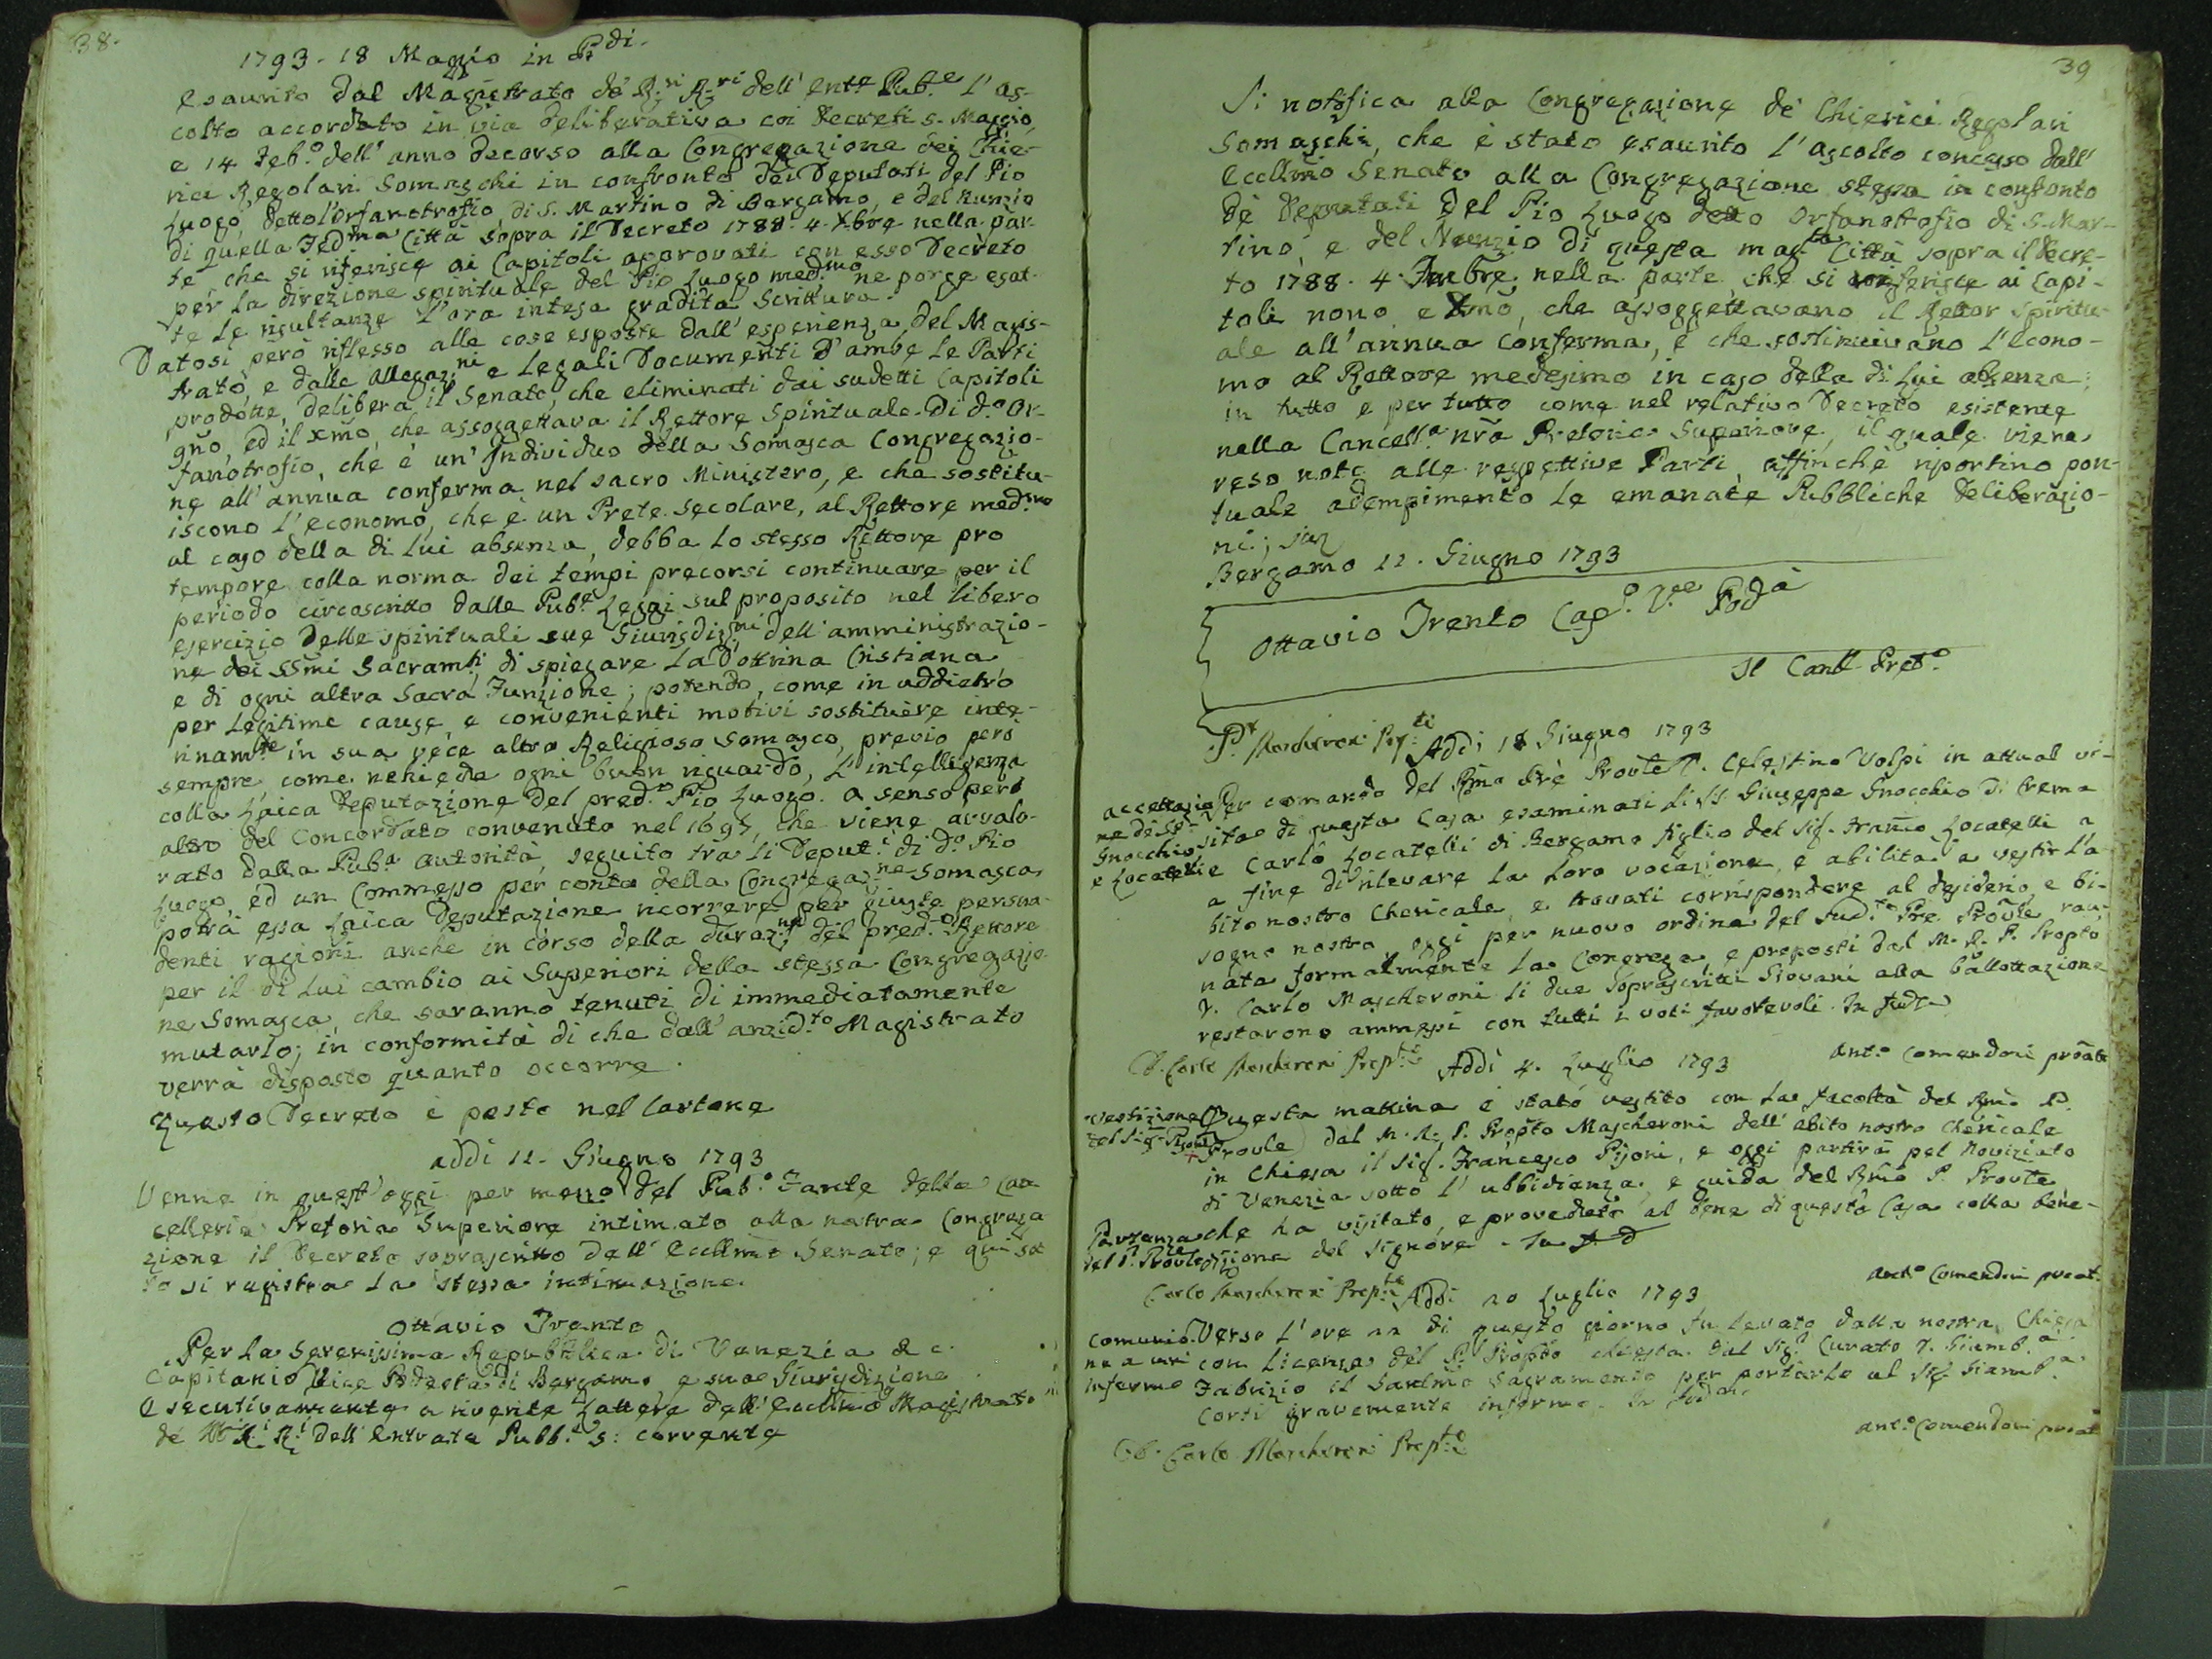 38.
1793. 18 Maggio in Pdi.
Esaurito dal Magistrato de' R:ri R:ri dell' Ent:e Pub:e l'as-
colto accordato in via deliberativa coi Decreti s. Maggio,
e 14 Feb:o dell' anno decorso alla Congregazione dei Chie-
rici Regolari Somaschi in confronto dei Deputati del Pio
Luogo, detto l'Orfanotrofio di S. Martino di Bergamo, e del Nunzio
di quella Fed:ma Città sopra il Decreto 1788. 4. Xbre nella par-
te, che si riferisce ai Capitoli approvati con esso Decreto
per la direzione spirituale del Pio Luogo med:mo ne porge esat-
te le risultanze l'ora intesa gradita Scrittura.
Datosi però riflesso alle cose esposte dall' esperienza del Magis-
trato, e dalle allegaz:ni e legali Documenti d'ambe le Parti
prodotte, delibera il Senato, che eliminati dai sudetti Capitoli
gno, ed il xmo, che assoggettava il Rettore Spirituale di d:o Or-
fanotrofio, che è un' Individuo della Somasca Congregazio-
ne all' annua conferma nel sacro Ministero, e che sostitu-
iscono l'economo, che è un Prete secolare, al Rettore med:mo
al caso della di lui absenza, debba lo stesso Rettore pro
tempore colla norma dei tempi precorsi continuare per il
periodo circoscritto dalle Pub:e Leggi sul proposito nel libero
esercizio delle spirituali sue Giurisdiz:ni dell' amministrazio-
ne dei SSmi Sacram:ti di spiegare la Dottrina Cristiana,
e di ogni altra Sacra Funzione; potendo, come in addietro
per legitime cause, e convenienti motivi sostituire inte-
rinam:te in sua vece altro Religioso Somasco, previo però
sempre, come richiede ogni buon riguardo, l'intelligenza
colla Laica Deputazione del pred:o Pio Luogo. A senso però
altro del Concordato convenuto nel 1695, che viene avvalo-
rato dalla Pub:a autorità, seguito tra li Deput:i di d:o Pio
Luogo, ed un Commesso per conto della Congregaz:ne Somasca,
potrà essa Laica Deputazione ricorrere per giuste persua-
denti ragioni anche in corso della duraz:ne del pred:o Rettore
per il di lui cambio ai Superiori della stessa Congregazio-
ne Somasca, che saranno tenuti di immediatamente
mutarlo; in conformità di che dall' anzid:to Magistrato
verrà disposto quanto occorre.
Questo Decreto è posto nel Cartone
addi 12. Giugno 1793
Venne in quest' oggi per mezzo del Pub:o Fante della Can
celleria Pretoria Superiore intimato alla nostra Congrega
zione il Decreto soprascritto dell' Eccllmo Senato; e qui sot
to si registra la stessa intimazione.
Ottavio Trento
Per la Serenissima Repubblica di Venezia &c.
Capitanio Vice Podestà di Bergamo, e sua Giurisdizione
Esecutivamente a riverite Lettere dell' Eccllmo Magistrato
de' R:i R:i dell' Entrate Pubb:e s: corrente
39
Si notifica alla Congregazione de' Chierici Regolari
Somaschi, che è stato esaurito l'ascolto concesso dall'
Eccllmo Senato alla Congregazione stessa in confronto
de' Deputati del Pio Luogo detto Orfanotrofio di S. Mar-
tino, e del Nunzio di questa mag:ca Città sopra il Decre-
to 1788. 4. Xmbre, nella parte, che si riferisce ai Capi-
toli nono e Xmo, che assoggettavano il Rettor Spiritu-
ale all' annua conferma, e che sostituivano l'Econo-
mo al Rettore medesimo in caso della di lui absenza;
in tutto e per tutto come nel relativo Decreto esistente
nella Cancell:a nra Pretoria Superiore, il quale viene
reso noto alle respettive Parti, affinchè riportino pon-
tuale adempimento le emanate Pubbliche Deliberazio-
ni;
Bergamo 12. Giugno 1793
Ottavio Trento Cap:o V:ce Podà
Il Canc Pret:o
D. Mascheroni Prep:ti Addi 18 Giugno 1793
accettazio
ne di
Gnocchio
e Locatelli
Per comando del Rmo Pre Provle P. Celestino Volpi in attual vi-
sita di questa Casa esaminati li SS. Giuseppe Gnocchio di Crema
e Carlo Locatelli di Bergamo figlio del Sig. Franco Locatelli a
a fine di rilevare la loro vocazione, e abilità a vestir l'a-
bito nostro Chericale, e trovati corrispondere al desiderio, e bi-
sogno nostro, oggi per nuovo ordine del Sud:o Pre Provle rau-
nata formalmente la Congrega, e proposti dal M. R. P. Propto
D. Carlo Mascheroni li due soprascritti Giovani alla ballottazione
restarono ammessi con tutti i voti favorevoli. In fede
D. Carlo Mascheroni Prep:to Addi 4. Luglio 1793
Ant:o Comendoni proat
Vestizione
del Sig. Pisoni
Questa mattina è stato vestito con la facoltà del Rmo P.
Provle dal M. R. P. Propto Mascheroni dell' abito nostro Chericale
in Chiesa il Sig. Francesco Pisoni, e oggi partirà pel Noviziato
di Venezia sotto l'ubbidianza, e guida del Rmo P. Provle,
Partenza
del P. Provle
che ha visitato, e proveduto al bene di questa Casa colla bene-
dizione del Signore. In
Carlo Mascheroni Prep:to Addi 20 Luglio 1793
Ant:o Comendoni proat.
Comunio-
ne a un
infermo
Verso l'ore 22 di questo giorno fu levato dalla nostra Chiesa
con licenza del P. Propto chiesta dal Sig:r Curato D. Giamb:a
Fabrizio il Santmo Sagramento per portarlo al Sig. Giamb:a
Corti gravemente infermo. In fed
Ant:o Comendoni proat
D. Carlo Mascheroni Prep:to